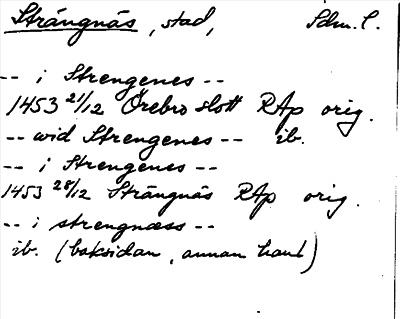 Strängnäs, stad, Sdm. l.
-- i Strengenes --
1453 21/12 Örebro slott RAp orig.
-- wid Strengenes -- ib.
-- i Strengenes --
1453 28/12 Strängnäs RAp orig.
-- i strengnæss --
ib. (baksidan, annan hand)